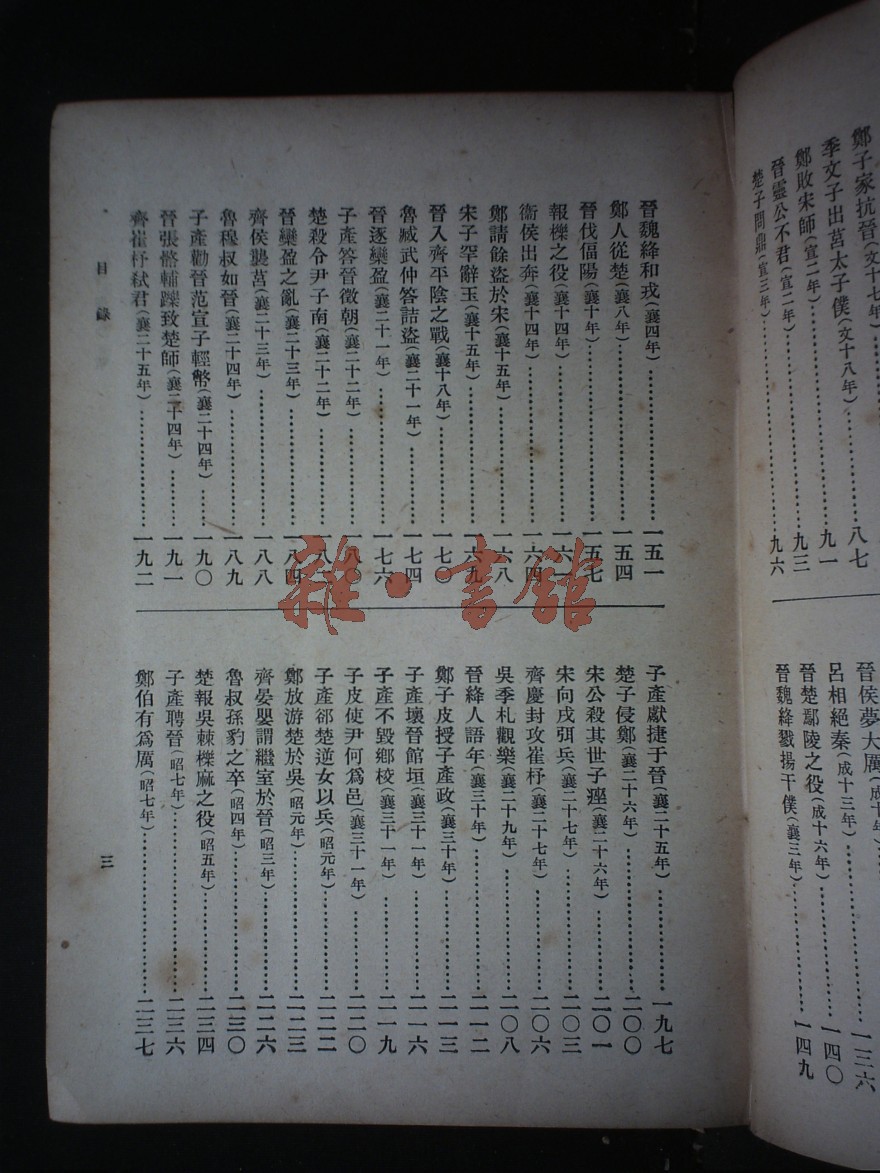 鄭子家抗晉(文十七年)……八七
季文子出莒太子僕(文十八年)……九一
鄭敗宋師(宣二年)……九三
晉靈公不君(宣二年)
楚子問鼎(宣三年)……九六
晉侯夢大厲(成十年)……一三六
呂相絕秦(成十三年)……一四〇
晉楚鄢陵之役(成十六年)
晉魏絳戮揚干僕(襄三年)……一四九
晉魏絳和戎(襄四年)……一五一
鄭人從楚(襄八年)……一五四
晉伐偪陽(襄十年)……一五七
報櫟之役(襄十四年)……一六一
衞侯出奔(襄十四年)……一六四
鄭請餘盜於宋(襄十五年)……一六八
宋子罕辭玉(襄十五年)……一六九
晉入齊平陰之戰(襄十八年)……一七〇
魯臧武仲答詰盜(襄二十一年)……一七四
晉逐欒盈(襄二十一年)……一七六
子產答晉徵朝(襄二十二年)……一八〇
楚殺令尹子南(襄二十二年)……一八
晉欒盈之亂(襄二十三年)……一八四
齊侯襲莒(襄二十三年)……一八八
魯穆叔如晉(襄二十四年)……一八九
子產勸晉范宣子輕幣(襄二十四年)……一九〇
晉張骼輔躒致楚師(襄二十四年)……一九一
齊崔杼弒君(襄二十五年)……一九二
子產獻捷于晉(襄二十五年)……一九七
楚子侵鄭(襄二十六年)……二〇〇
宋公殺其世子痤(襄二十六年)……二〇一
宋向戌弭兵(襄二十七年)……二〇三
齊慶封攻崔杼(襄二十七年)……二〇六
吳季札觀樂(襄二十九年)……二〇八
晉絳人語年(襄三十年)……二一二
鄭子皮授子產政(襄三十年)……二一三
子產壞晉館垣(襄三十一年)……二一六
子產不毀鄉校(襄三十一年)……二一九
子皮使尹何爲邑(襄三十一年)……二二〇
子產郤楚逆女以兵(昭元年)……二二二
鄭放游楚於吳(昭元年)……二二三
齊晏嬰謂繼室於晉(昭三年)……二二六
魯叔孫豹之卒(昭四年)……二三〇
楚報吳棘櫟麻之役(昭五年)……二三四
子產聘晉(昭七年)……二三六
鄭伯有爲厲(昭七年)……二三七
目錄
三
雜·書館